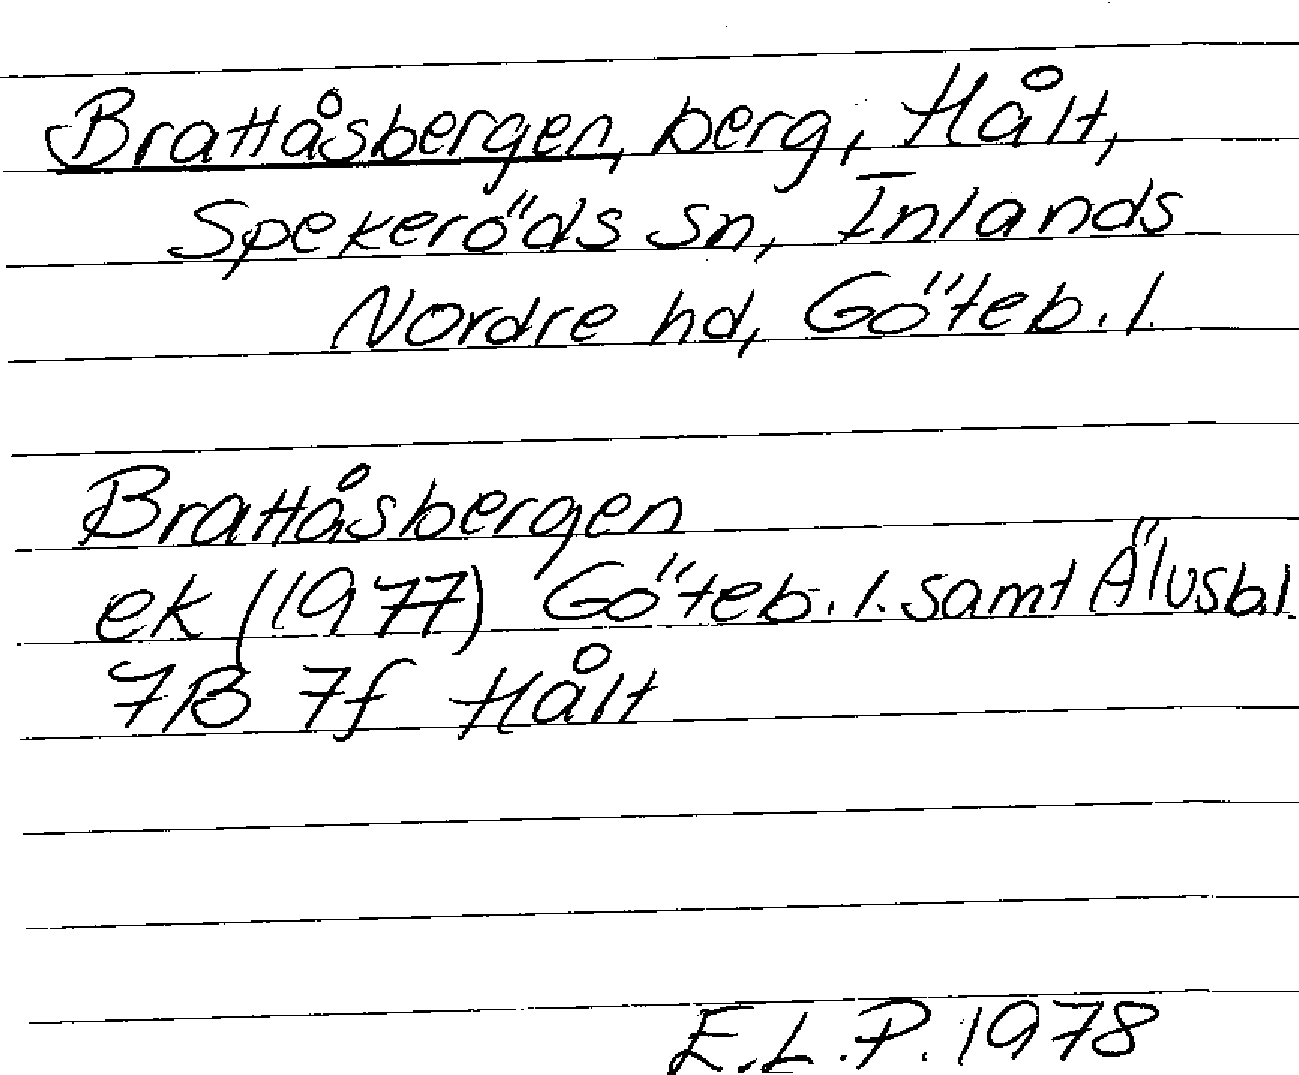 Brattåsbergen, berg, Hålt,
Spekeröds sn, Inlands
Nordre hd, Göteb. l.
Brattåsbergen
ek (1977) Göteb. l. samt Älvsb.l
7B 7f Hålt
E.L.P. 1978